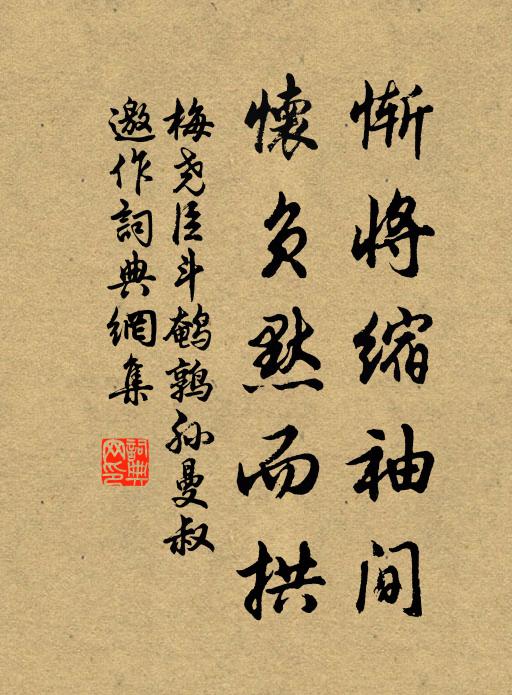 惭将缩袖间
怀负默而拱
梅尧臣斗鹌鹑孙曼叔
邀作詞典網集
詞典网印